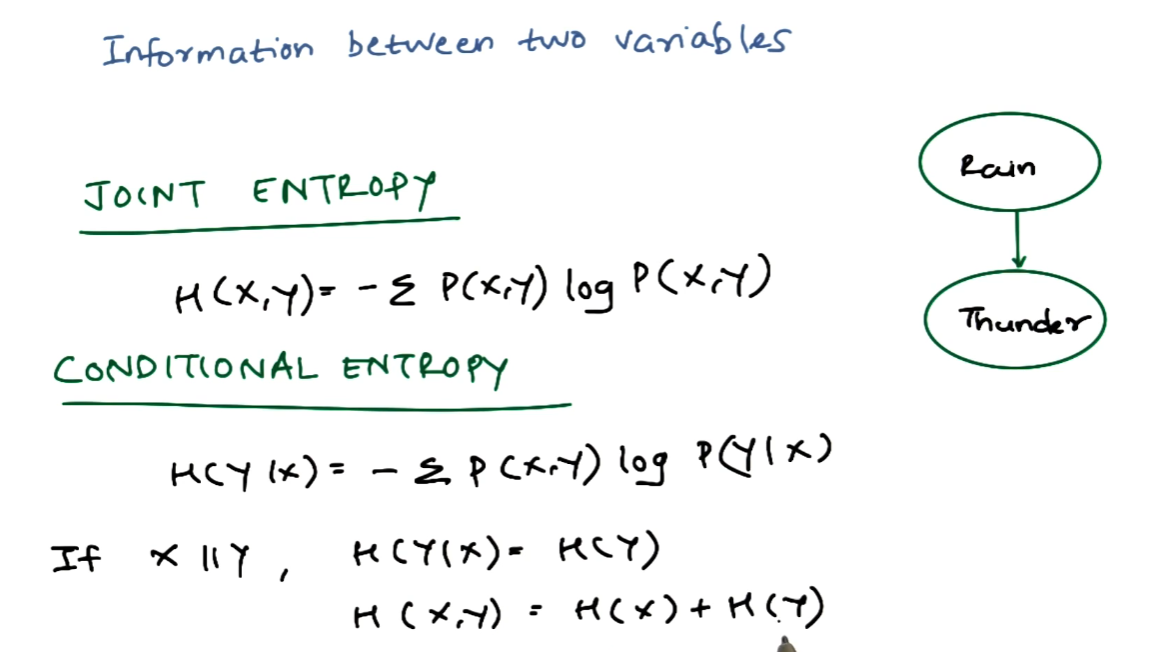 Information between two variables
JOINT ENTROPY
H(X,Y)= -Σ P(X,Y) log P(X,Y)
CONDITIONAL ENTROPY
H(Y|X)= - Σ P(X,Y) log P(Y|X)
If X ⫫ Y, H(Y|X)= H(Y)
H(X,Y) = H(X)+ H(Y)
Rain
Thunder